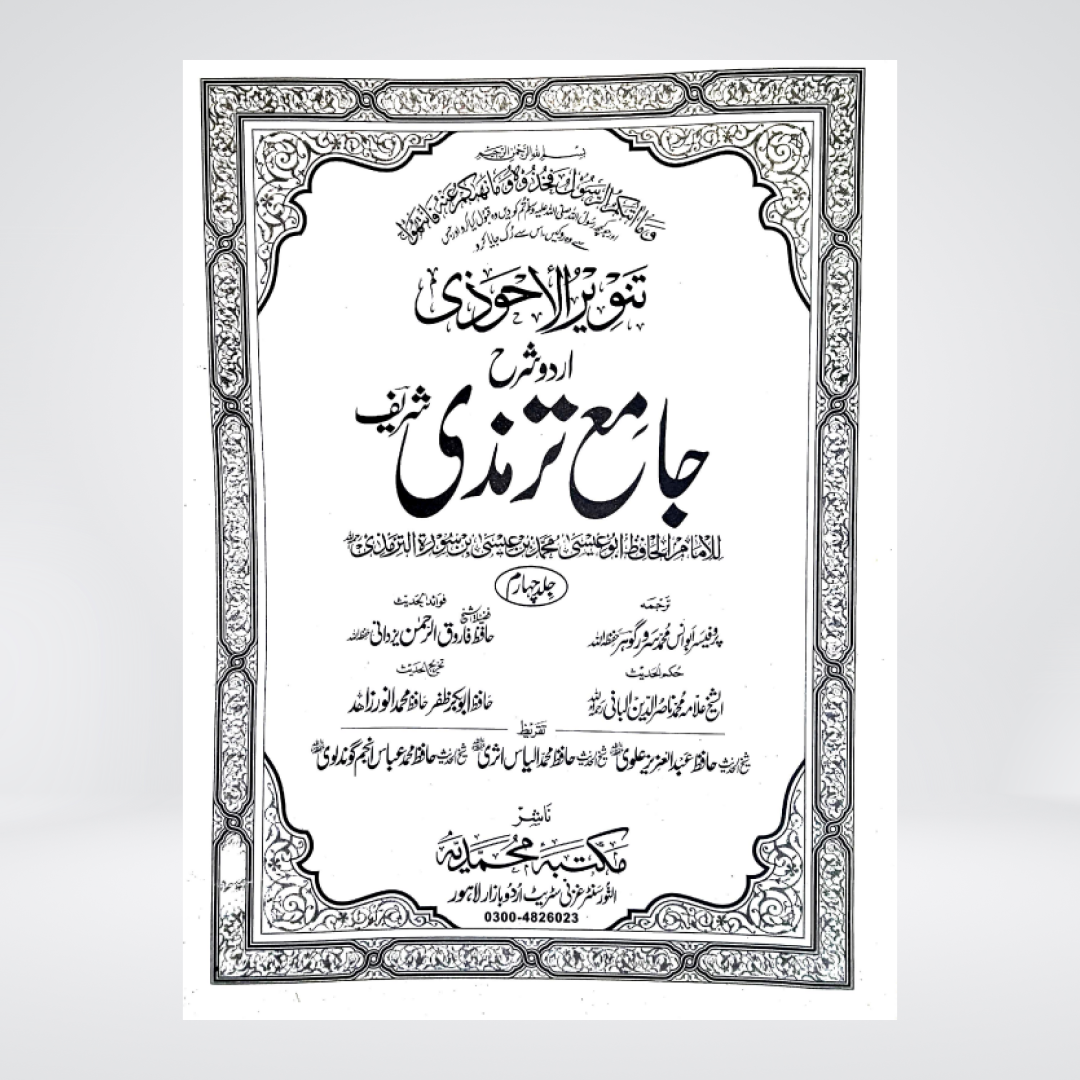 بسم اللہ الرحمن الرحیم
وما اتىكم الرسول فخذوه وما نهىكم عنه فانتهوا
اور جو کچھ رسول اللہ صلی اللہ علیہ وسلم تم کو دیں وہ قبول کیا کرو اور جس
سے وہ روکیں اس سے رُک جایا کرو
تنویر الاحوذی
اردو شرح
جامع ترمذی شریف
للامام الحافظ ابو عیسی محمد بن عیسی بن سورة الترمذی
جلد چہارم
ترجمہ
پروفیسر ابو انس محمد سرور گوہر حفظہ اللہ
فوائد الحدیث
فضیلۃ الشیخ
حافظ فاروق الرحمن یزدانی حفظہ اللہ
حکم الحدیث
الشیخ علامہ محمد ناصر الدین البانی رحمہ اللہ
تخریج الحدیث
حافظ ابوبکر ظفر حافظ محمد انور زاہد
تقریظ
شیخ الحدیث حافظ عبد العزیز علوی شیخ الحدیث حافظ محمد الیاس اثری شیخ الحدیث حافظ محمد عباس انجم گوندلوی
ناشر
مکتبہ محمدیہ
النور سنٹر غزنی سٹریٹ اردو بازار لاہور
0300-4826023